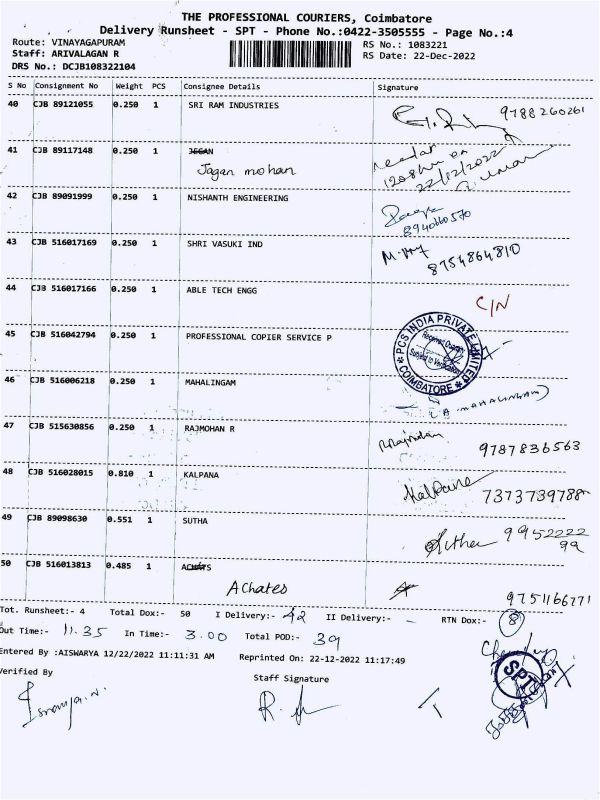 THE PROFESSIONAL COURIERS, Coimbatore
Delivery Runsheet - SPT - Phone No.:0422-3505555 - Page No.:4
Route: VINAYAGAPURAM RS No.: 1083221
Staff: ARIVALAGAN R RS Date: 22-Dec-2022
DRS No.: DCJB108322104
S No Consignment No Weight PCS Consignee Details Signature
40 CJB 89121055 0.250 1 SRI RAM INDUSTRIES 9788260261
41 CJB 89117148 0.250 1 JEGAN
Jagan mohan
22/12/2022
42 CJB 89091999 0.250 1 NISHANTH ENGINEERING
8940660570
43 CJB 516017169 0.250 1 SHRI VASUKI IND
8754864810
44 CJB 516017166 0.250 1 ABLE TECH ENGG
C/N
45 CJB 516042794 0.250 1 PROFESSIONAL COPIER SERVICE P
PCS INDIA PRIVATE LIMITED
COIMBATORE
46 CJB 516006218 0.250 1 MAHALINGAM
(A. MAHALINGAM)
47 CJB 515630856 0.250 1 RAJMOHAN R
9787836563
48 CJB 516028015 0.810 1 KALPANA
Kalpana 7373739788
49 CJB 89098630 0.551 1 SUTHA
Sutha 9952222
99
50 CJB 516013813 0.485 1 ACHATS
Achates
9751166771
Tot. Runsheet:- 4 Total Dox:- 50 I Delivery:- 42 II Delivery:- - RTN Dox:- 8
Out Time:- 11.35 In Time:- 3.00 Total POD:- 39
Entered By :AISWARYA 12/22/2022 11:11:31 AM Reprinted On: 22-12-2022 11:17:49
Verified By Staff Signature
SPT